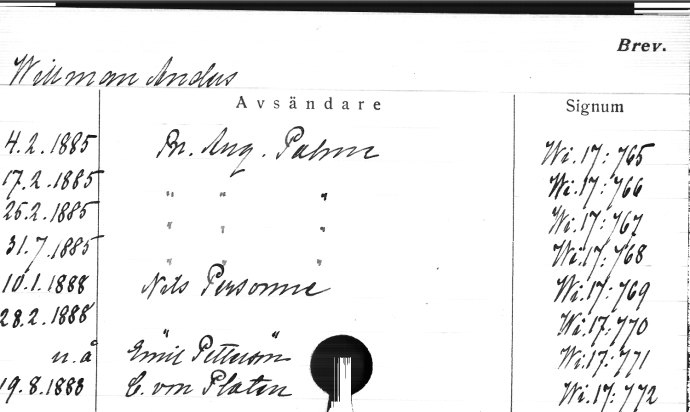 Brev.
Willman Anders
Avsändare Signum
4.2.1885 Fr. Aug. Palme Wi.17:765
17.2.1885 " " " Wi.17:766
25.2.1885 " " " Wi.17:767
31.7.1885 " " " Wi.17:768
10.1.1888 Nils Personne Wi.17:769
28.2.1888 " " Wi.17:770
u.å Emil Petterson Wi.17:771
19.8.1888 C. von Platen Wi.17:772